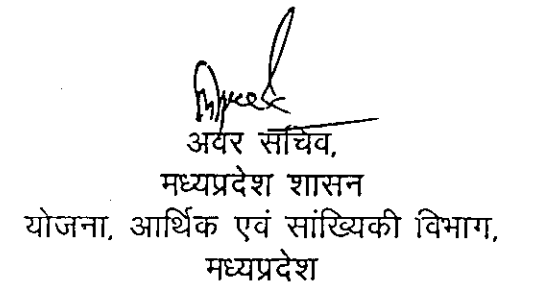 अवर सचिव,
मध्यप्रदेश शासन
योजना, आर्थिक एवं सांख्यिकी विभाग,
मध्यप्रदेश